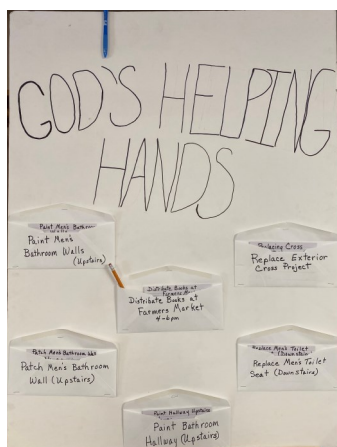 GOD'S HELPING
HANDS
Paint Men's Bathroom
Paint Men's
Bathroom Walls
(Upstairs)
Replacing Cross
Replace Exterior
Cross Project
Distribute Books at
Farmers
Distribute Books at
Farmers Market
4-6pm
Patch Men's Bathroom Wall
Patch Men's Bathroom
Wall (Upstairs)
Replace Men's Toilet
(Downstairs)
Replace Men's Toilet
Seat (Downstairs)
Paint Hallway Upstairs
Paint Bathroom
Hallway (Upstairs)